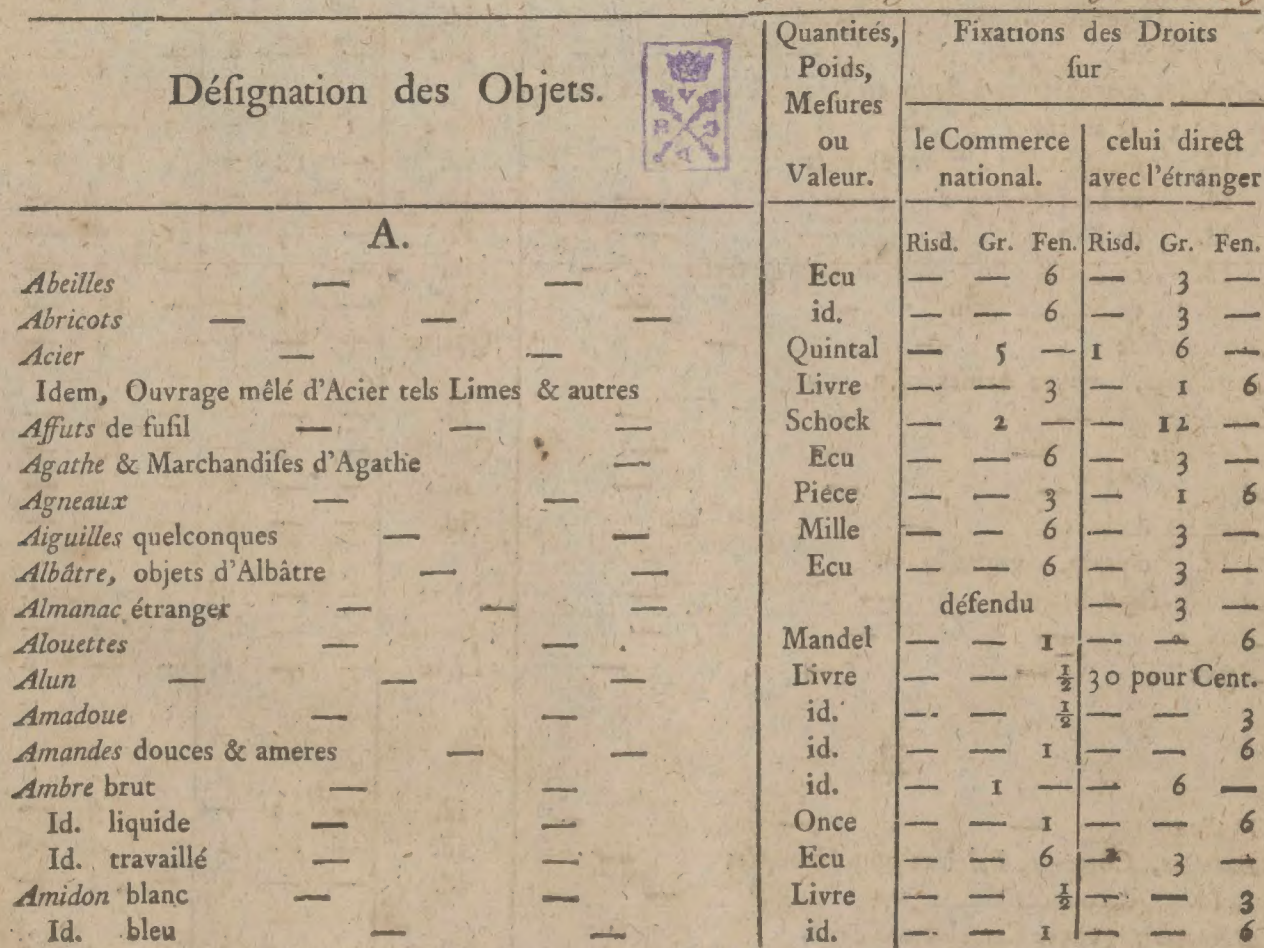 Quantités, Fixations des Droits
Désignation des Objets. Poids, sur
Mesures
ou le Commerce celui direct
Valeur. national. avec l'étranger
A. Risd. Gr. Fen. Risd. Gr. Fen.
Abeilles — — Ecu — — 6 — 3 —
Abricots — — — id. — — 6 — 3 —
Acier — — Quintal — 5 — 1 6 —
Idem, Ouvrage mêlé d'Acier tels Limes & autres Livre — — 3 — 1 6
Affuts de fusil — — — Schock — 2 — — 12 —
Agathe & Marchandises d'Agathe — Ecu — — 6 — 3 —
Agneaux — — Piéce — — 3 — 1 6
Aiguilles quelconques — — Mille — — 6 — 3 —
Albâtre, objets d'Albâtre — — Ecu — — 6 — 3 —
Almanac étranger — — — défendu — 3 —
Alouettes — — Mandel — — 1 — — 6
Alun — — — Livre — — ½ 30 pour Cent.
Amadoue — — id. — — ½ — — 3
Amandes douces & ameres — — id. — — 1 — — 6
Ambre brut — — id. — 1 — — 6 —
Id. liquide — — Once — — 1 — — 6
Id. travaillé — — Ecu — — 6 — 3 —
Amidon blanc — — Livre — — ½ — — 3
Id. bleu — — id. — — 1 — — 6